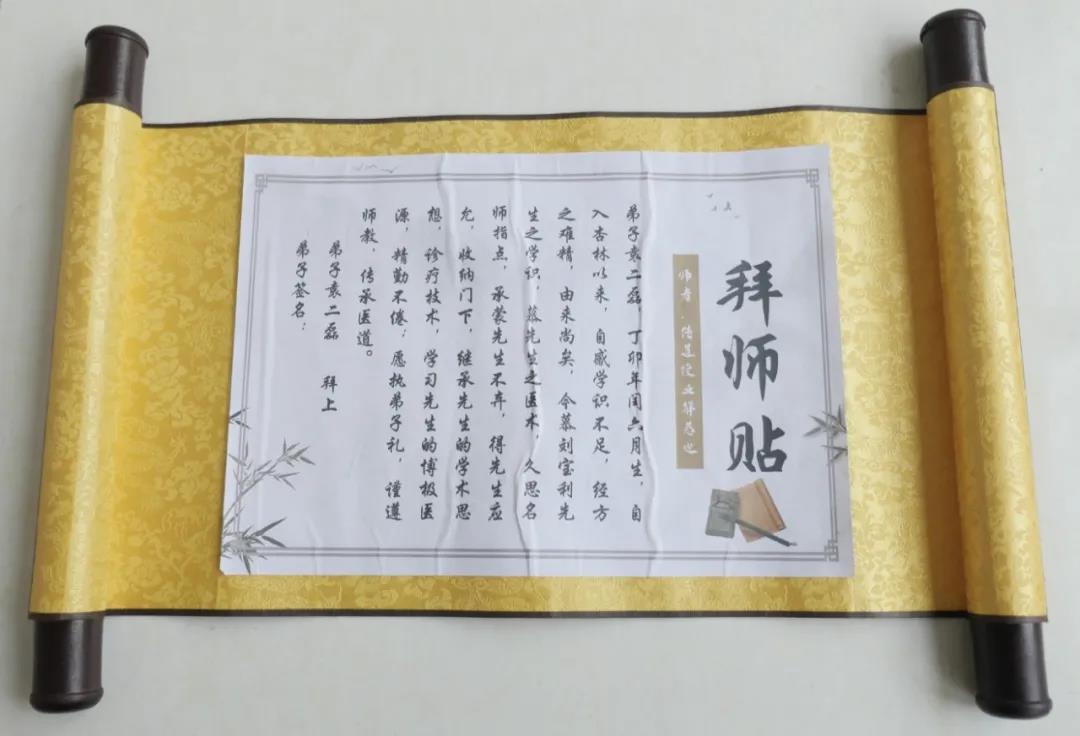 拜师贴
师者，传道授业解惑也
弟子袁二磊，丁卯年闰六月生，自
入杏林以来，自感学识不足，经方
之难精，由来尚矣，今慕刘宝利先
生之学识，慕先生之医术，久思名
师指点，承蒙先生不弃，得先生应
允，收纳门下，继承先生的学术思
想，诊疗技术，学习先生的博极医
源，精勤不倦；愿执弟子礼，谨遵
师教，传承医道。
弟子袁二磊 拜上
弟子签名：